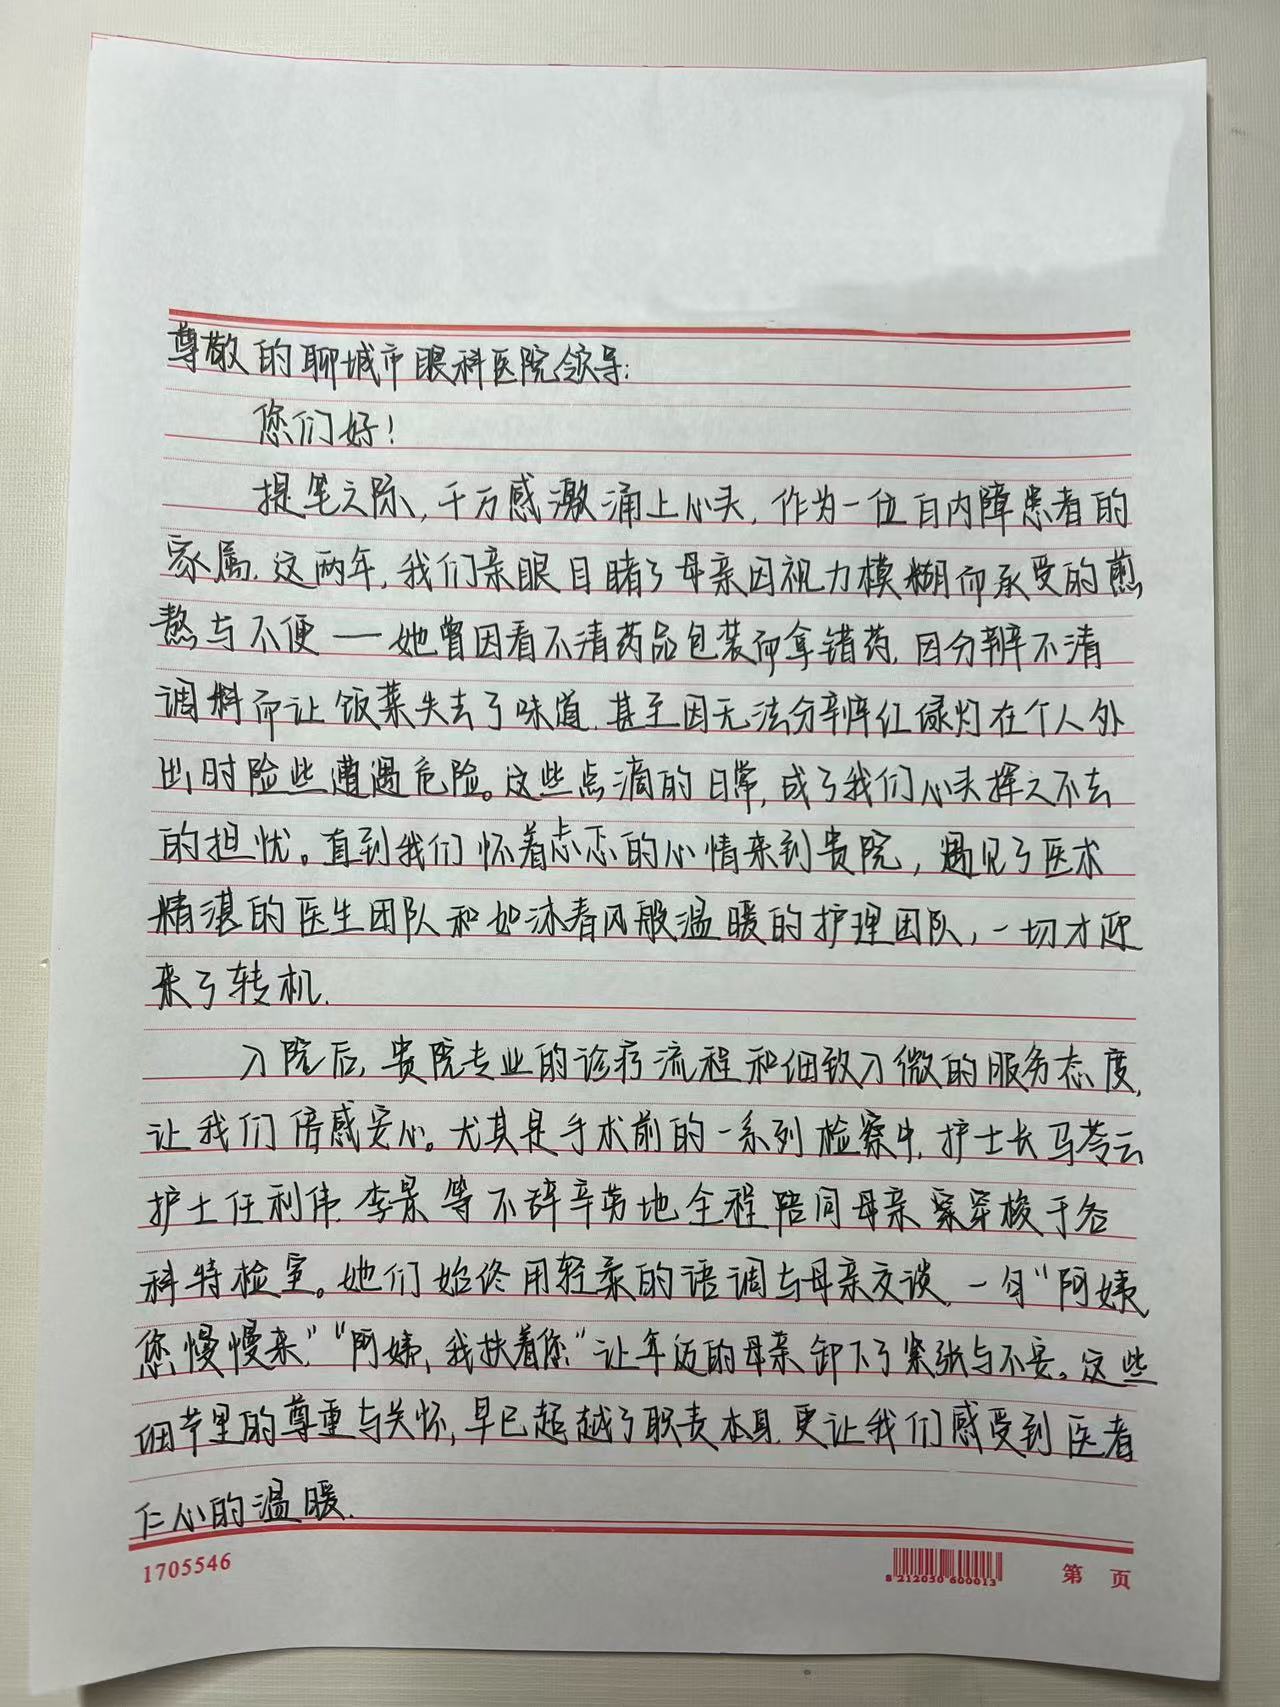 尊敬的聊城市眼科医院领导:
您们好!
提笔之际,千万感激涌上心头,作为一位白内障患者的
家属,这两年,我们亲眼目睹了母亲因视力模糊而承受的煎
熬与不便——她曾因看不清药品包装而拿错药,因分辨不清
调料而让饭菜失去了味道,甚至因无法分辨红绿灯在个人外
出时险些遭遇危险。这些点滴的日常,成了我们心头挥之不去
的担忧。直到我们怀着忐忑的心情来到贵院,遇见了医术
精湛的医生团队和如沐春风般温暖的护理团队,一切才迎
来了转机.
入院后,贵院专业的诊疗流程和细致入微的服务态度,
让我们倍感安心。尤其是手术前的一系列检察中,护士长马苓云
护士任利伟、李景等不辞辛劳地全程陪同母亲穿梭于各
科特检室。她们始终用轻柔的语调与母亲交谈,一句"阿姨,
您慢慢来,""阿姨,我扶着您,"让年迈的母亲卸下了紧张与不安。这些
细节里的尊重与关怀,早已超越了职责本身,更让我们感受到医者
仁心的温暖.
1705546
8 212050 600013
第 页